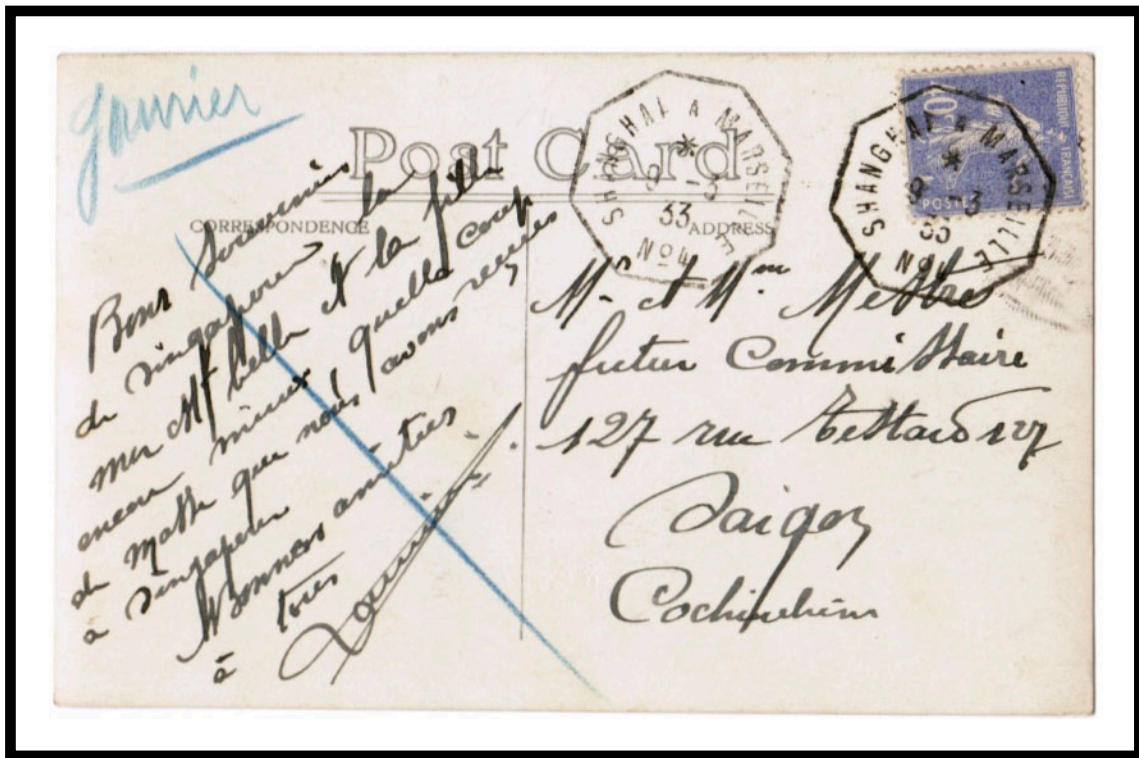 Janvier
Post Card
CORRESPONDENCE
ADDRESS
SHANGHAI A MARSEILLE
33
No4
SHANGHAI A MARSEILLE
REPUBLIQUE FRANCAISE
POSTES
Bons Souvenirs
de Singapour la
mer est belle et la fille
encore mieux quelle coup
de que nous avons
à Singapour
Bonnes amitiés
à tous
Mr et Mme
futur Commissaire
127 rue Testard 127
Saigon
Cochinchine